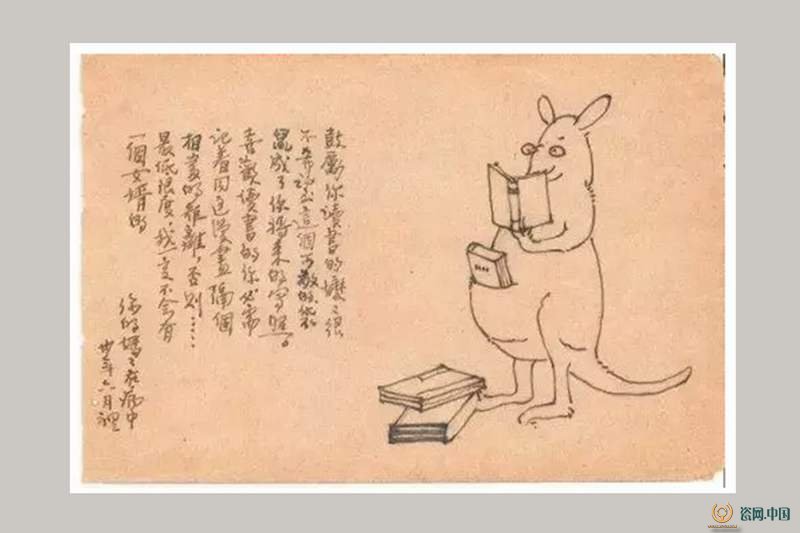 鼓勵你讀書的媽々很
不希望這個可敬的袋
鼠成了你將來的寫照。
喜歡讀書的你必需
記着同這漫畫隔個
相當的距離，否則……
最低限度，我一定不會有
一個女婿的
你的媽々在病中
年六月裡
瓷网.中国